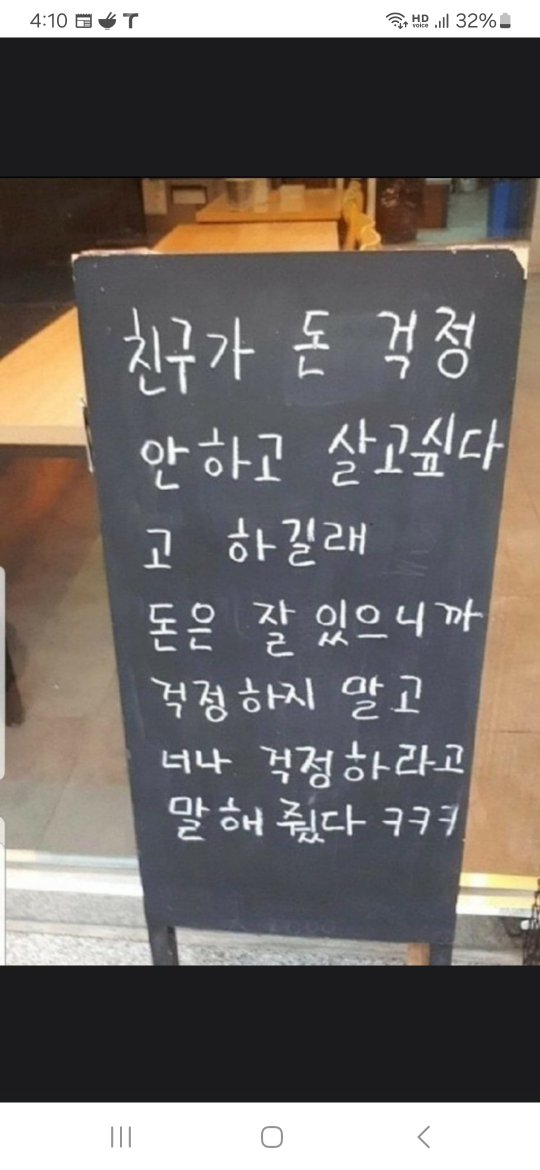 4:10 HD voice 32%
친구가 돈 걱정
안하고 살고싶다
고 하길래
돈은 잘 있으니까
걱정하지 말고
너나 걱정하라고
말해 줬다 ㅋㅋㅋ